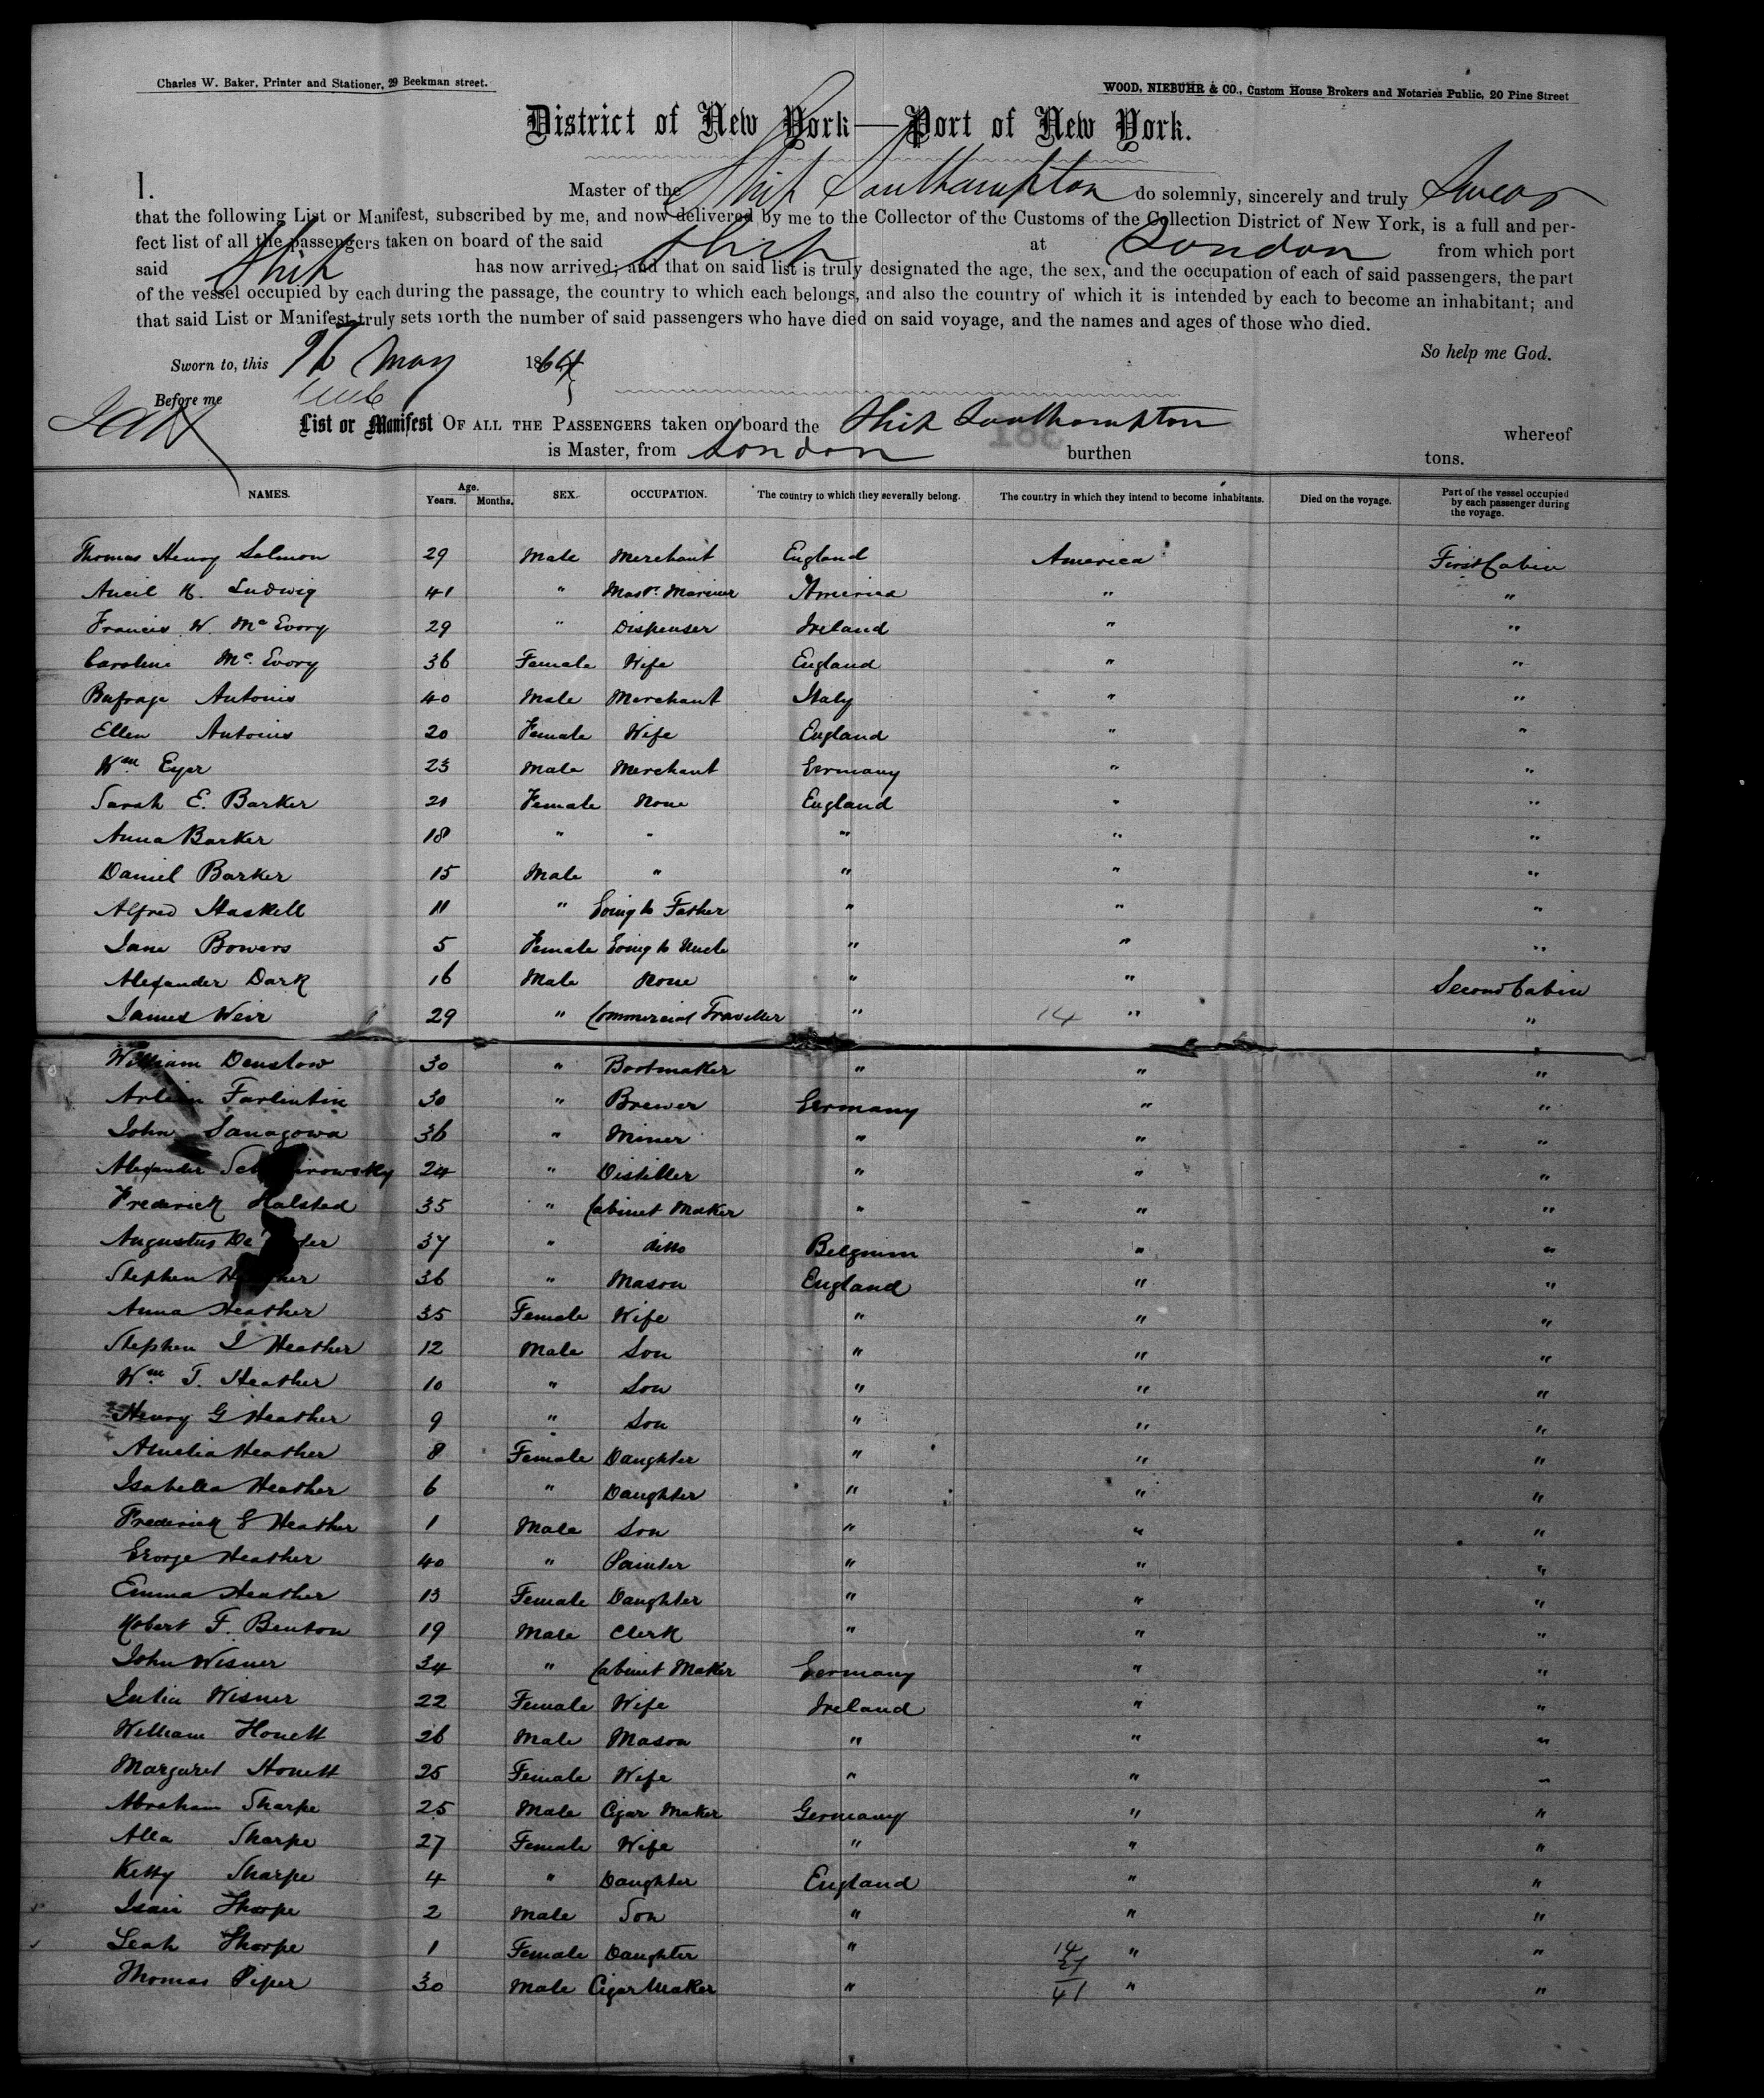 Charles W. Baker, Printer and Stationer, 29 Beekman street.
WOOD, NIEBUHR & CO., Custom House Brokers and Notaries Public, 20 Pine Street
District of New York—Port of New York.
I. Master of the Ship Southampton do solemnly, sincerely and truly Swear
that the following List or Manifest, subscribed by me, and now delivered by me to the Collector of the Customs of the Collection District of New York, is a full and per-
fect list of all the passengers taken on board of the said Ship at London from which port
said Ship has now arrived; and that on said list is truly designated the age, the sex, and the occupation of each of said passengers, the part
of the vessel occupied by each during the passage, the country to which each belongs, and also the country of which it is intended by each to become an inhabitant; and
that said List or Manifest truly sets forth the number of said passengers who have died on said voyage, and the names and ages of those who died.
So help me God.
Sworn to, this May 1864
Before me
List or Manifest OF ALL THE PASSENGERS taken on board the Ship Southampton whereof
is Master, from London burthen tons.
NAMES. Age. Years. Months. SEX. OCCUPATION. The country to which they severally belong. The country in which they intend to become inhabitants. Died on the voyage. Part of the vessel occupied by each passenger during the voyage.
Thomas Henry Salmon 29 Male Merchant England America First Cabin
H. Ludwig 41 " Mast. Mariner America " "
Francis W. McEvory 29 " Dispenser Ireland " "
Caroline McEvory 36 Female Wife England " "
Antonis 40 Male Merchant Italy " "
Ellen Antonis 20 Female Wife England " "
Wm Eyer 23 Male Merchant Germany " "
Sarah E. Barker 21 Female None England " "
Anna Barker 18 " " " " "
Daniel Barker 15 Male " " " "
Alfred Haskell 11 " Going to Father " " "
Jane Bowers 5 Female Going to Uncle " " "
Alexander Dark 16 Male None " " Second Cabin
James Weir 29 " Commercial Traveller " 14 " "
William Denslow 30 " Bootmaker " " "
Farlintin 30 " Brewer Germany " "
John Sanagowa 36 " Miner " " "
Alexander 24 " Distiller " " "
Frederick Halsted 35 " Cabinet Maker " " "
Augustus 37 " ditto Belgium " "
Stephen Heather 36 " Mason England " "
Anna Heather 35 Female Wife " " "
Stephen J Heather 12 Male Son " " "
Wm T. Heather 10 " Son " " "
Henry G Heather 9 " Son " " "
Amelia Heather 8 Female Daughter " " "
Isabella Heather 6 " Daughter " " "
Frederick G Heather 1 Male Son " " "
George Heather 40 " Painter " " "
Emma Heather 13 Female Daughter " " "
Robert F. Benton 19 Male Clerk " " "
John Wisner 34 " Cabinet Maker Germany " "
Julia Wisner 22 Female Wife Ireland " "
William Honett 26 Male Mason " " "
Margaret Honett 25 Female Wife " " "
Abraham Sharpe 25 Male Cigar Maker Germany " "
Alla Sharpe 27 Female Wife " " "
Kitty Sharpe 4 " Daughter England " "
Sharpe 2 Male Son " " "
Leah Sharpe 1 Female Daughter " 14 " "
27
Thomas Piper 30 Male Cigar Maker " 41 " "